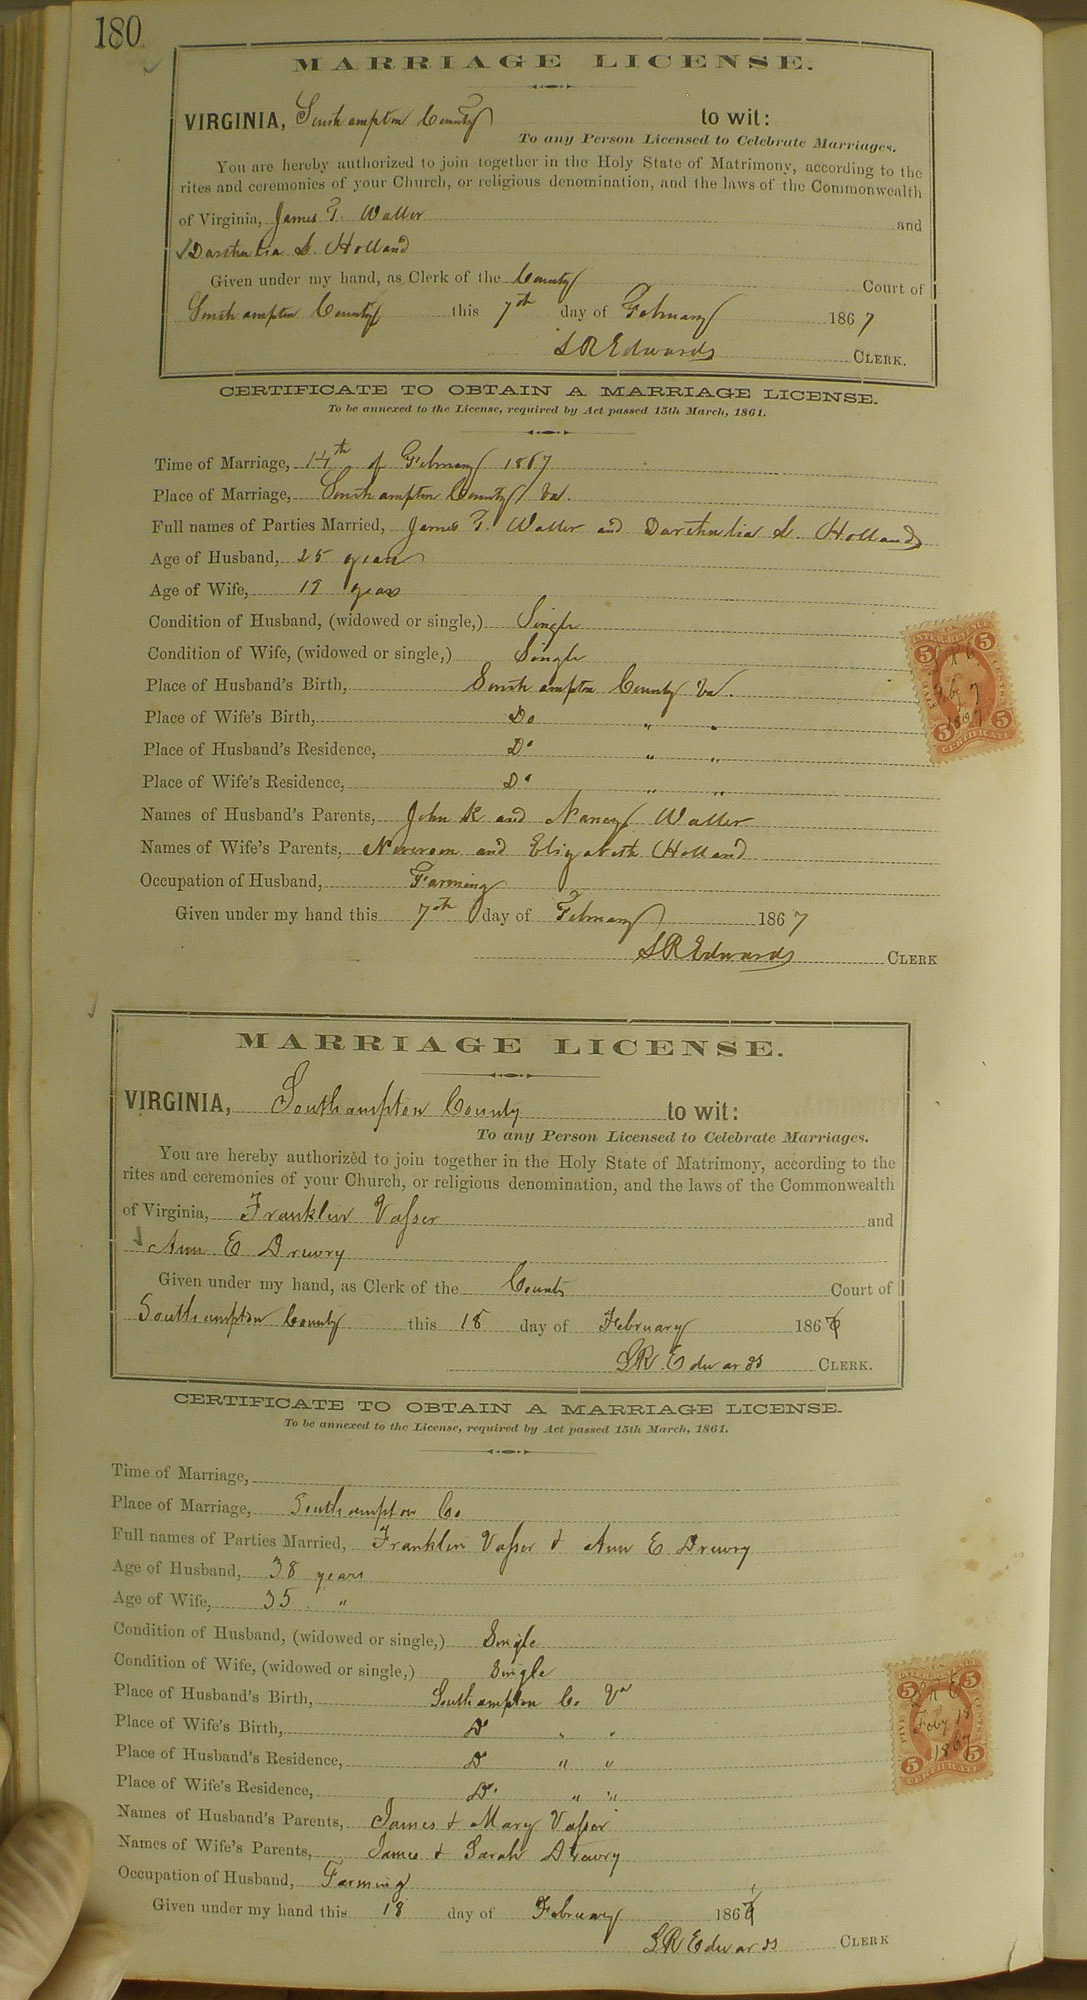 180
MARRIAGE LICENSE.
VIRGINIA, Southampton County to wit:
To any Person Licensed to Celebrate Marriages.
You are hereby authorized to join together in the Holy State of Matrimony, according to the
rites and ceremonies of your Church, or religious denomination, and the laws of the Commonwealth
of Virginia, James T. Waller and
Darthulia S. Holland
Given under my hand, as Clerk of the County Court of
Southampton County this 7th day of February 1867
LR Edwards CLERK.
CERTIFICATE TO OBTAIN A MARRIAGE LICENSE.
To be annexed to the License, required by Act passed 15th March, 1861.
Time of Marriage, 14th of February 1867
Place of Marriage, Southampton County Va.
Full names of Parties Married, James T. Waller and Darthulia S. Holland
Age of Husband, 25 years
Age of Wife, 19 years
Condition of Husband, (widowed or single,) Single
Condition of Wife, (widowed or single,) Single
Place of Husband's Birth, Southampton County Va.
Place of Wife's Birth, Do " "
Place of Husband's Residence, Do " "
Place of Wife's Residence, Do " "
Names of Husband's Parents, John K and Nancy Waller
Names of Wife's Parents, and Elizabeth Holland
Occupation of Husband, Farming
Given under my hand this 7th day of February 1867
LR Edwards CLERK
INTER. REVENUE
5 5
LRE
Feb 7
1867
FIVE CENTS.
5 5
CERTIFICATE
MARRIAGE LICENSE.
VIRGINIA, Southampton County to wit:
To any Person Licensed to Celebrate Marriages.
You are hereby authorized to join together in the Holy State of Matrimony, according to the
rites and ceremonies of your Church, or religious denomination, and the laws of the Commonwealth
of Virginia, Franklin Vasser and
Ann E Drewry
Given under my hand, as Clerk of the County Court of
Southampton County this 18 day of February 1867
LR Edwards CLERK.
CERTIFICATE TO OBTAIN A MARRIAGE LICENSE.
To be annexed to the License, required by Act passed 15th March, 1861.
Time of Marriage,
Place of Marriage, Southampton Co
Full names of Parties Married, Franklin Vasser & Ann E Drewry
Age of Husband, 38 years
Age of Wife, 35 "
Condition of Husband, (widowed or single,) Single
Condition of Wife, (widowed or single,) Single
Place of Husband's Birth, Southampton Co Va
Place of Wife's Birth, Do " "
Place of Husband's Residence, Do " "
Place of Wife's Residence, Do " "
Names of Husband's Parents, James & Mary Vasser
Names of Wife's Parents, James & Sarah Drewry
Occupation of Husband, Farming
Given under my hand this 18 day of February 1867
LR Edwards CLERK
5 5
LRE
Feby 18
1867
FIVE CENTS.
5 5
CERTIFICATE